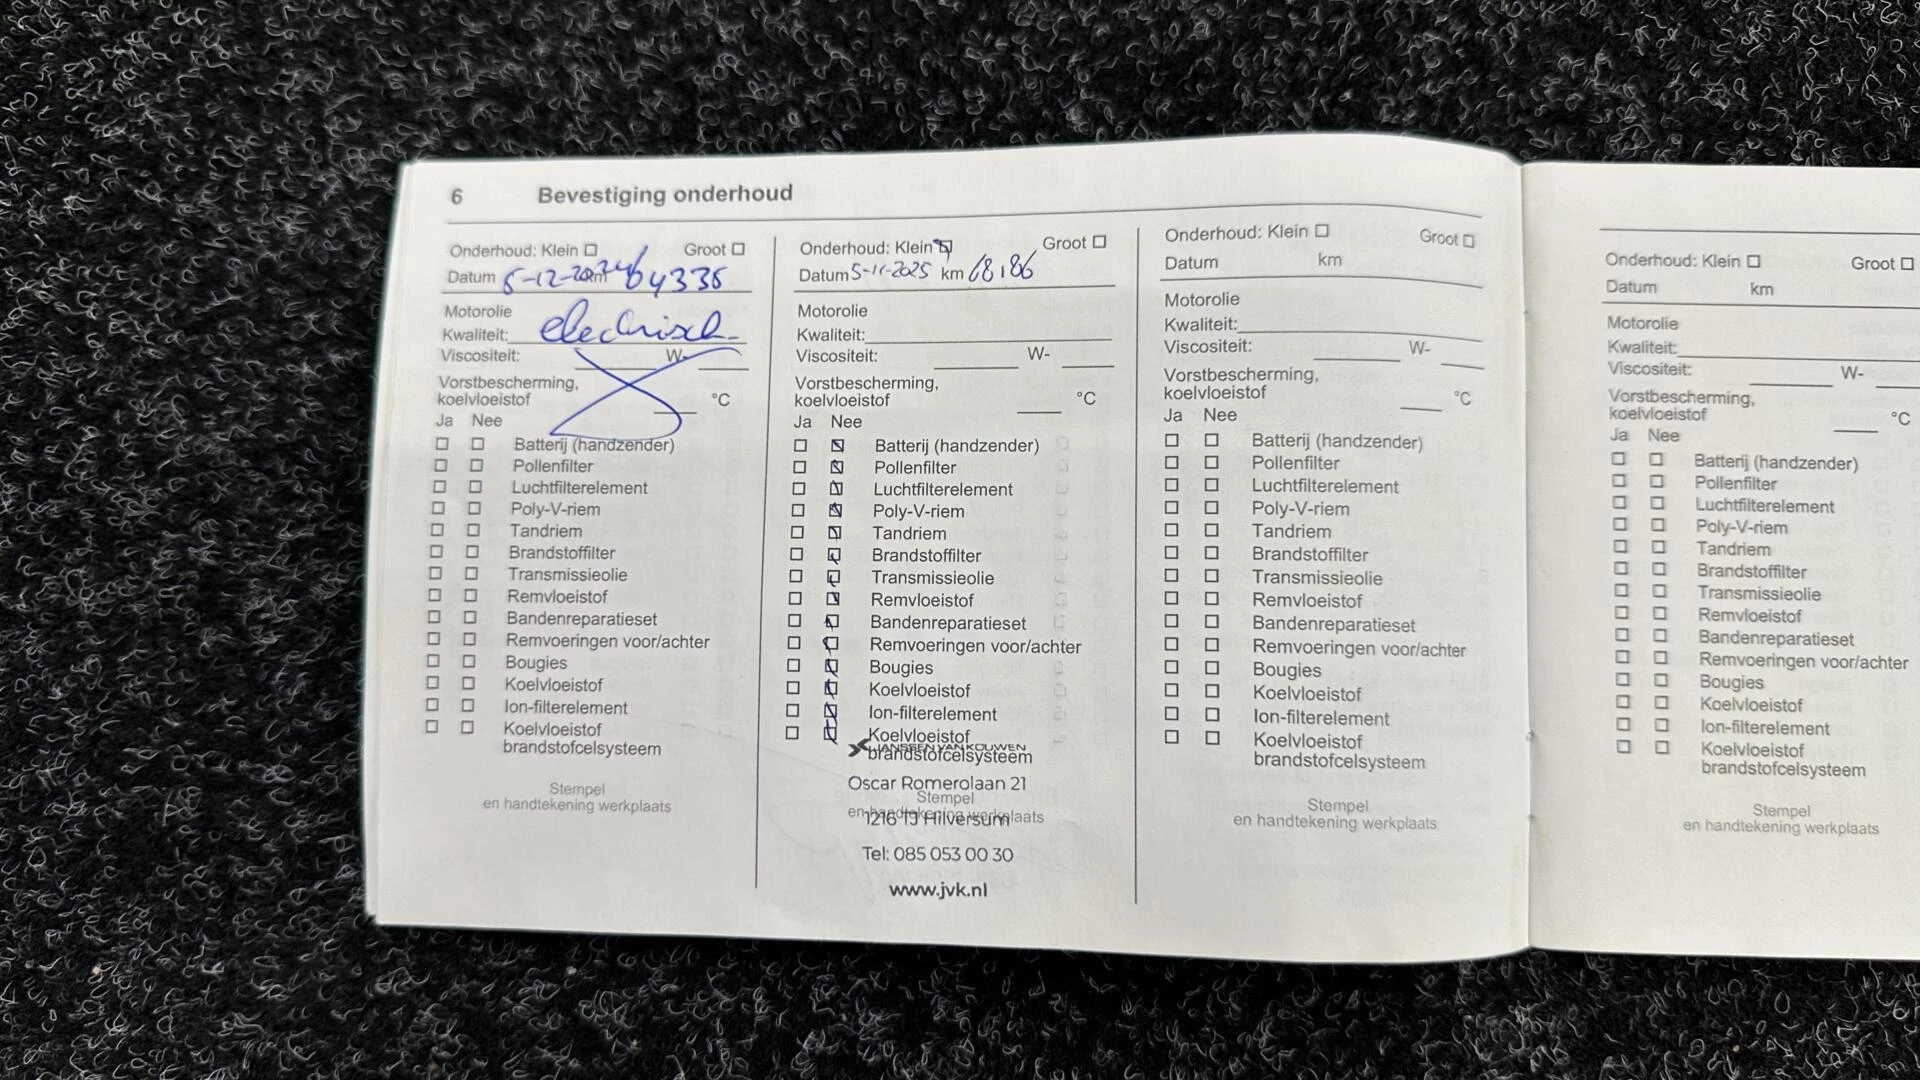 6 Bevestiging onderhoud
Onderhoud: Klein ☐ Groot ☐
Datum 5-12-2024 km 64335
Motorolie
Kwaliteit: electrisch
Viscositeit: W-
Vorstbescherming,
koelvloeistof °C
Ja Nee
☐ ☐ Batterij (handzender)
☐ ☐ Pollenfilter
☐ ☐ Luchtfilterelement
☐ ☐ Poly-V-riem
☐ ☐ Tandriem
☐ ☐ Brandstoffilter
☐ ☐ Transmissieolie
☐ ☐ Remvloeistof
☐ ☐ Bandenreparatieset
☐ ☐ Remvoeringen voor/achter
☐ ☐ Bougies
☐ ☐ Koelvloeistof
☐ ☐ Ion-filterelement
☐ ☐ Koelvloeistof
brandstofcelsysteem
Stempel
en handtekening werkplaats
Onderhoud: Klein ☒ Groot ☐
Datum 5-11-2025 km 68186
Motorolie
Kwaliteit:
Viscositeit: W-
Vorstbescherming,
koelvloeistof °C
Ja Nee
☐ ☒ Batterij (handzender)
☐ ☒ Pollenfilter
☐ ☒ Luchtfilterelement
☐ ☒ Poly-V-riem
☐ ☒ Tandriem
☐ ☒ Brandstoffilter
☐ ☒ Transmissieolie
☐ ☒ Remvloeistof
☐ ☒ Bandenreparatieset
☐ ☒ Remvoeringen voor/achter
☐ ☒ Bougies
☐ ☒ Koelvloeistof
☐ ☒ Ion-filterelement
☐ ☒ Koelvloeistof
JANSSEN VAN KOUWEN
brandstofcelsysteem
Oscar Romerolaan 21
Stempel
en handtekening werkplaats
1216 TJ Hilversum
Tel: 085 053 00 30
www.jvk.nl
Onderhoud: Klein ☐ Groot ☐
Datum km
Motorolie
Kwaliteit:
Viscositeit: W-
Vorstbescherming,
koelvloeistof °C
Ja Nee
☐ ☐ Batterij (handzender)
☐ ☐ Pollenfilter
☐ ☐ Luchtfilterelement
☐ ☐ Poly-V-riem
☐ ☐ Tandriem
☐ ☐ Brandstoffilter
☐ ☐ Transmissieolie
☐ ☐ Remvloeistof
☐ ☐ Bandenreparatieset
☐ ☐ Remvoeringen voor/achter
☐ ☐ Bougies
☐ ☐ Koelvloeistof
☐ ☐ Ion-filterelement
☐ ☐ Koelvloeistof
brandstofcelsysteem
Stempel
en handtekening werkplaats
Onderhoud: Klein ☐ Groot ☐
Datum km
Motorolie
Kwaliteit:
Viscositeit: W-
Vorstbescherming,
koelvloeistof °C
Ja Nee
☐ ☐ Batterij (handzender)
☐ ☐ Pollenfilter
☐ ☐ Luchtfilterelement
☐ ☐ Poly-V-riem
☐ ☐ Tandriem
☐ ☐ Brandstoffilter
☐ ☐ Transmissieolie
☐ ☐ Remvloeistof
☐ ☐ Bandenreparatieset
☐ ☐ Remvoeringen voor/achter
☐ ☐ Bougies
☐ ☐ Koelvloeistof
☐ ☐ Ion-filterelement
☐ ☐ Koelvloeistof
brandstofcelsysteem
Stempel
en handtekening werkplaats